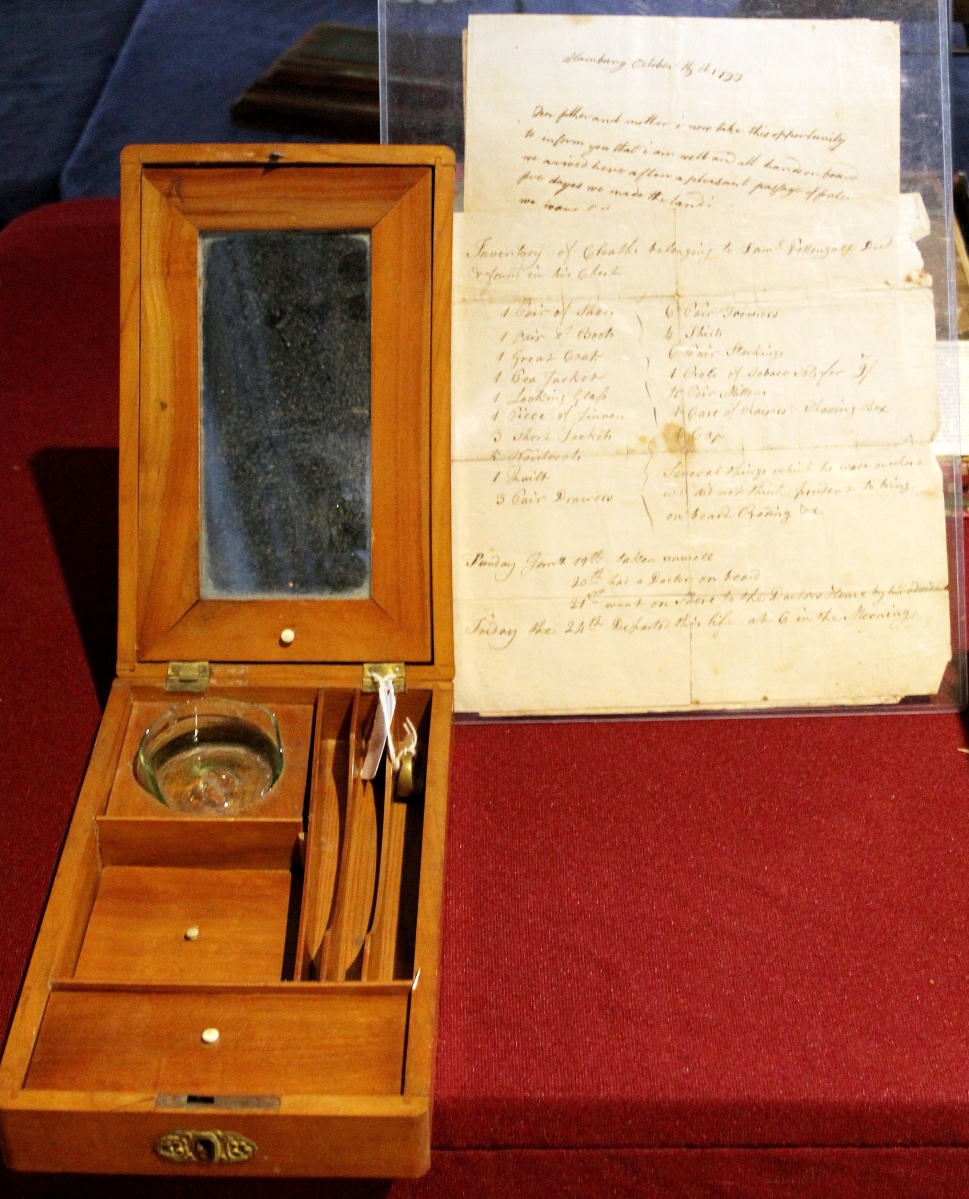 Hamburg October th 1799
Dear father and mother i now take this opportunity
to inform you that i am well and all hands on board
we arrived here after a pleasant passage of
five dayes we made the land
we
Inventory of Cloaths belonging to Sam.l Decd
& found in his Chest
1 Pair of Shoes
1 Pair of Boots
1 Great Coat
1 Pea Jacket
1 Looking Glass
1 Piece of Linnen
3 Short Jackets
Waistcoats
1 Quilt
3 Pair Drawers
6 Pair Trowsers
4 Shirts
6 Pair Stockings
1 of Tobaco Sold for
Pair Mittens
1 Case of Raisors & Shaving Box
1 Cap
Several things which he wore onshore
we did not think prudent to bring
on board &c
Sunday Jany 19th taken unwell
20th had a Doctor on board
21st went on Shore to the Doctors House by his advice
Friday the 24th Departed this life at 6 in the Morning